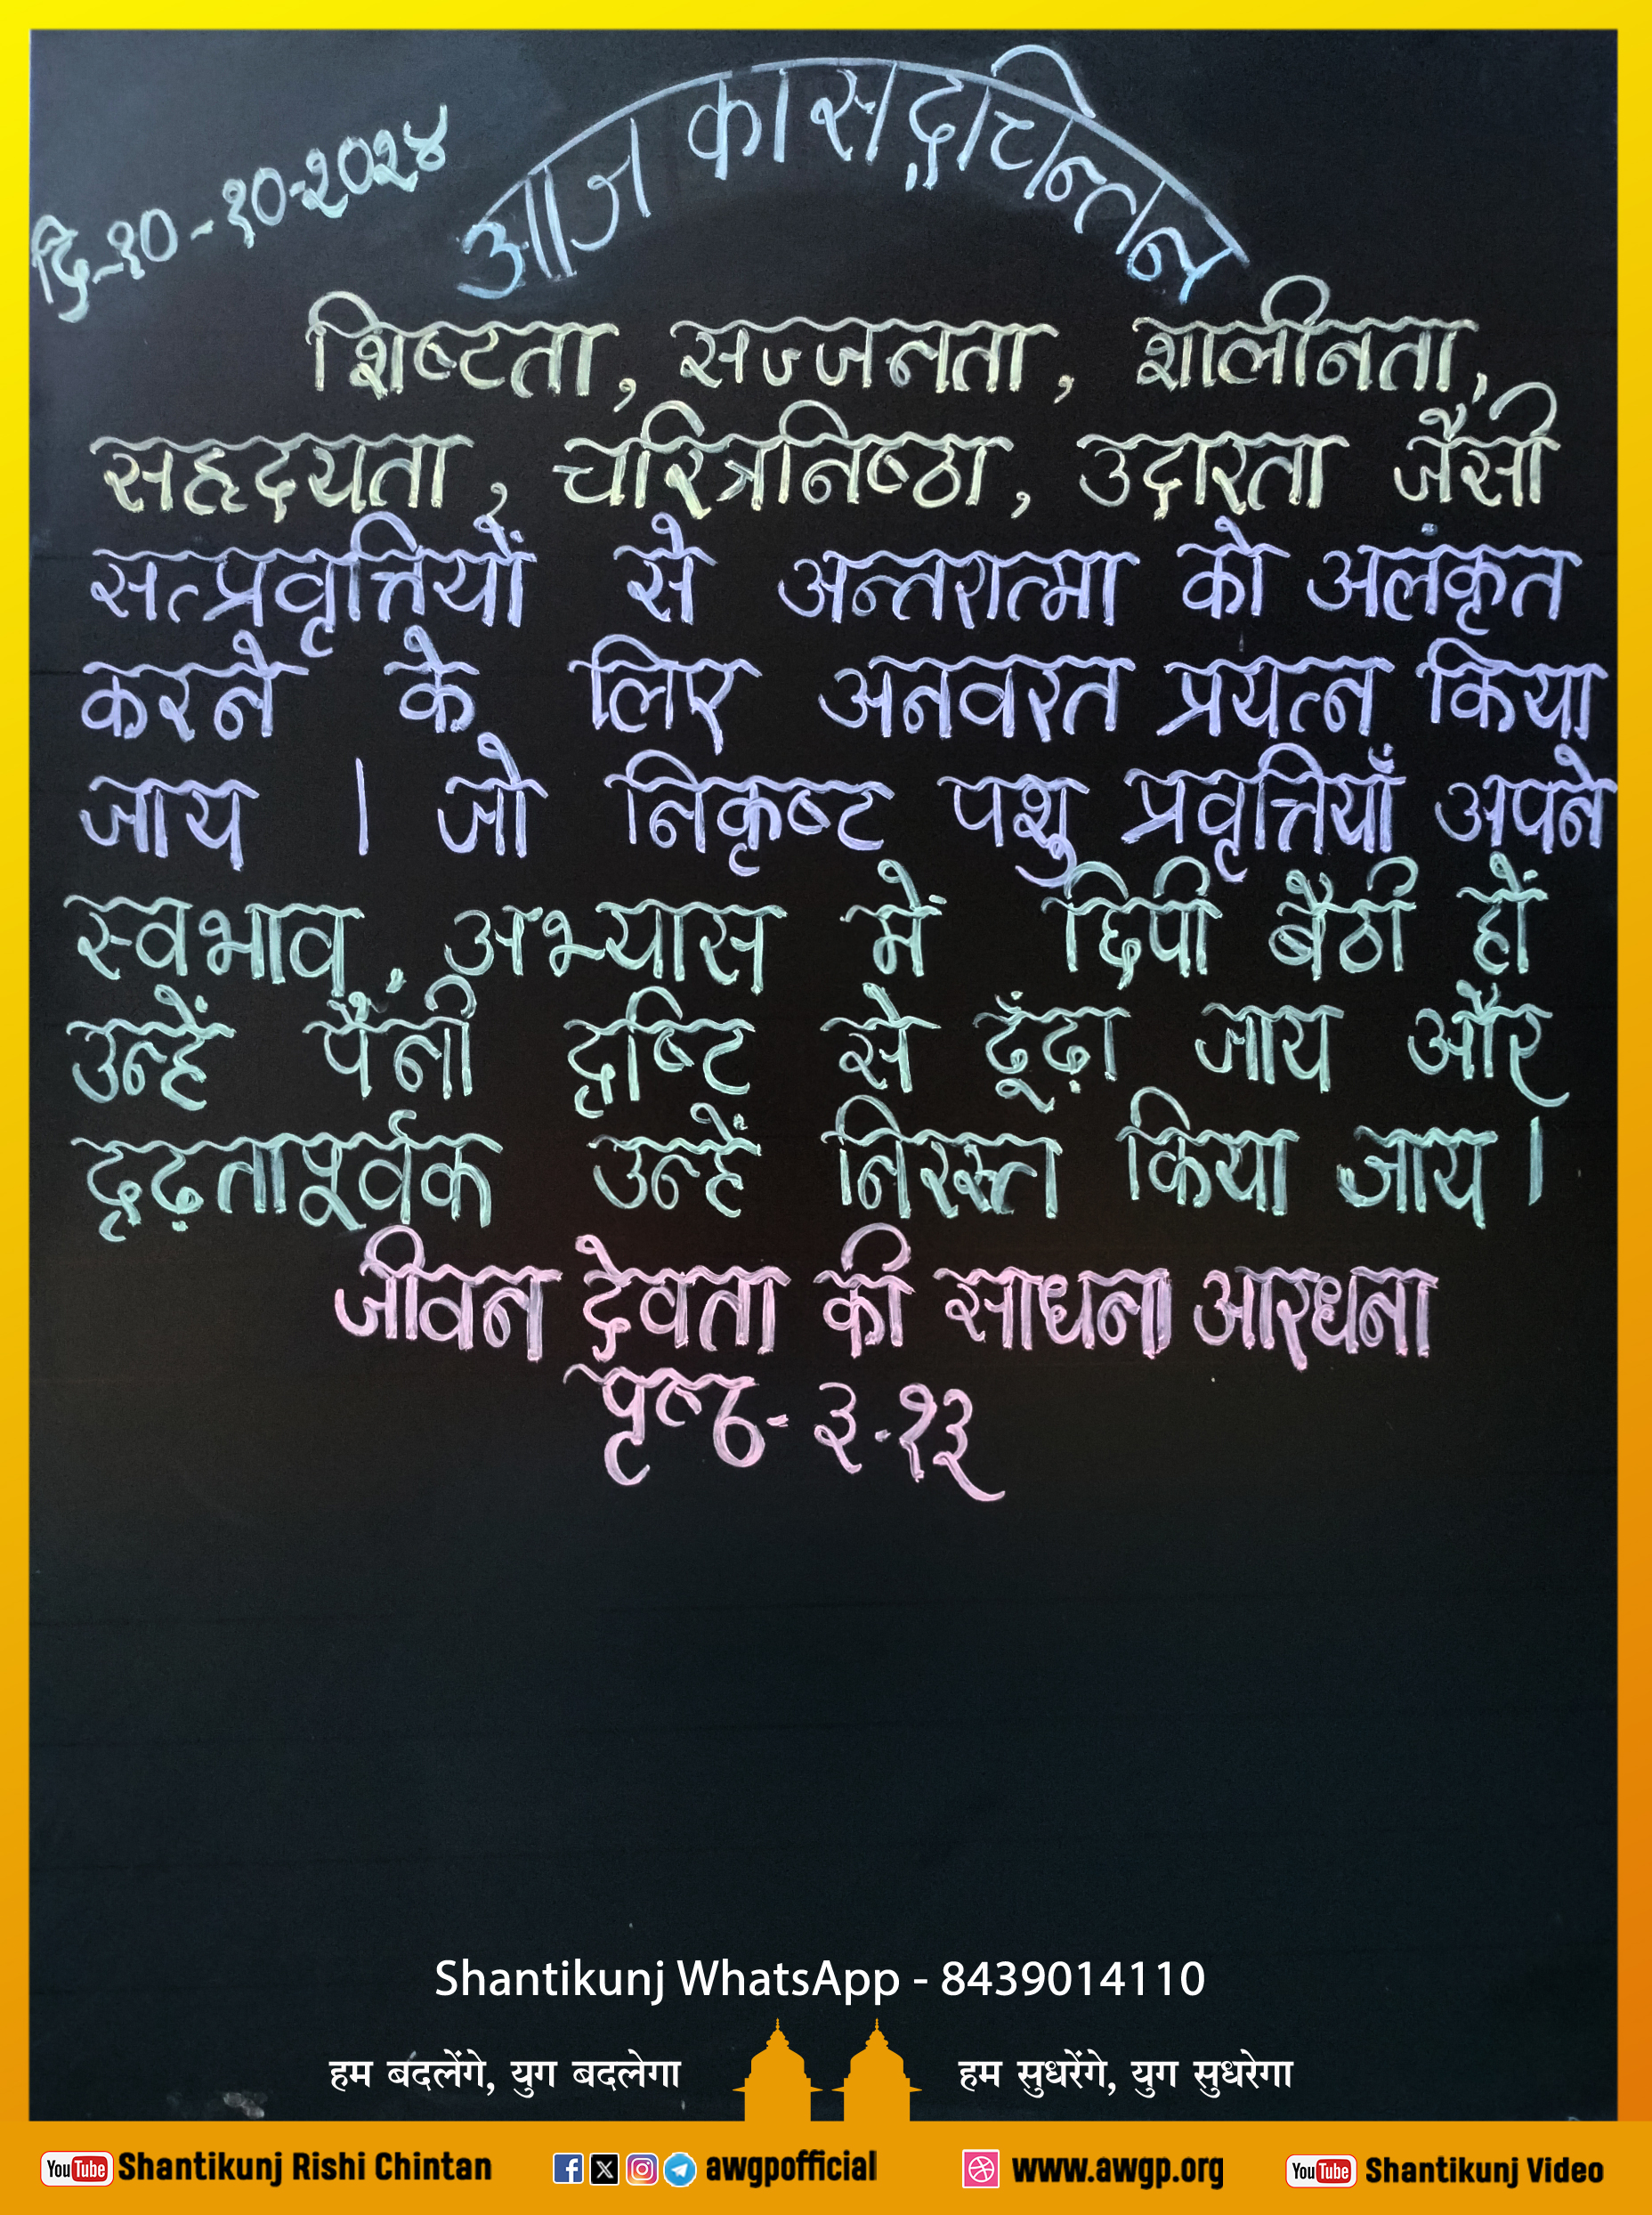 दि-१०-१०-२०२४
आज का सद्चिन्तन
शिष्टता, सज्जनता, शालीनता,
सहृदयता, चरित्रनिष्ठा, उदारता जैसी
सत्प्रवृत्तियों से अन्तरात्मा को अलंकृत
करने के लिए अनवरत प्रयत्न किया
जाय । जो निकृष्ट पशु प्रवृत्तियाँ अपने
स्वभाव, अभ्यास में छिपी बैठी हों
उन्हें पैंनी दृष्टि से ढूंढ़ा जाय और
दृढ़तापूर्वक उन्हें निरस्त किया जाय ।
जीवन देवता की साधना आरधना
पृष्ठ- ३.१३
Shantikunj WhatsApp - 8439014110
हम बदलेंगे, युग बदलेगा हम सुधरेंगे, युग सुधरेगा
YouTube Shantikunj Rishi Chintan awgpofficial www.awgp.org YouTube Shantikunj Video